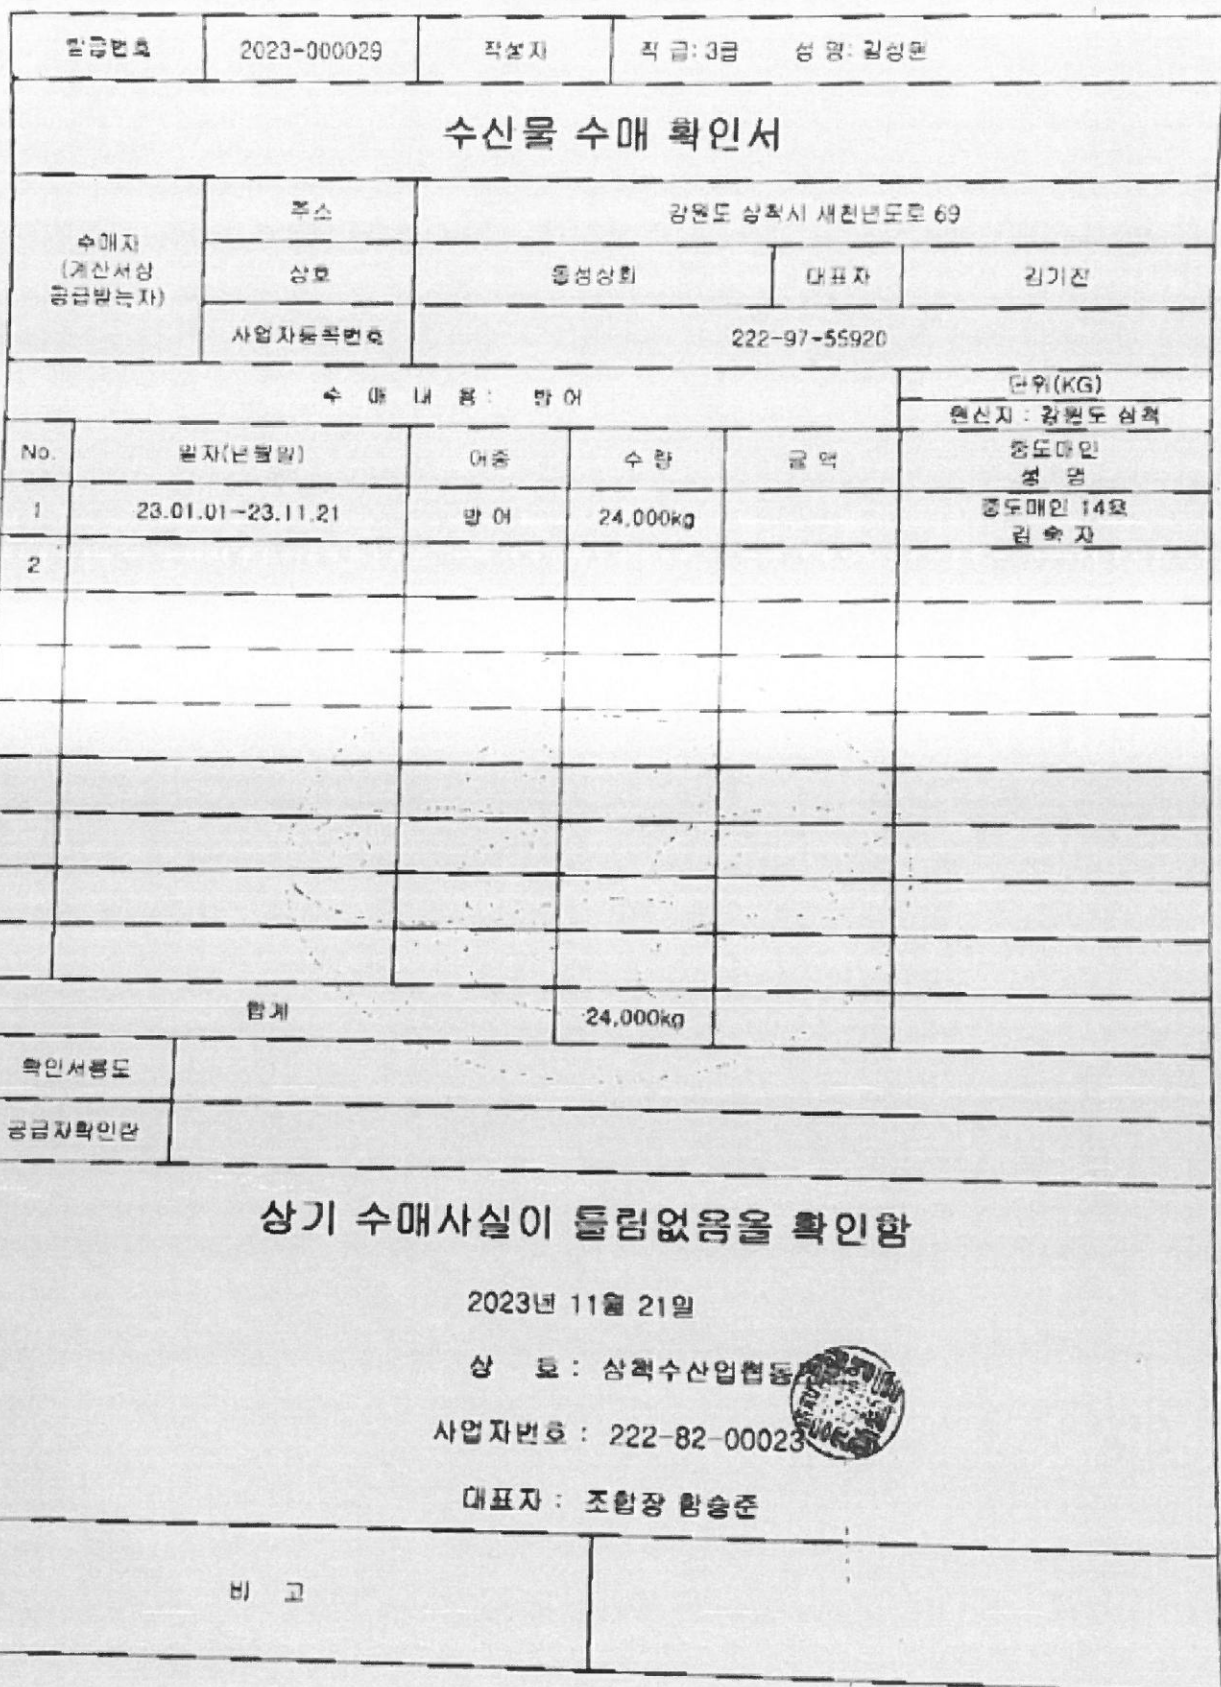 발급번호 2023-000029 작성자 직 급: 3급 성 명: 김성원
수산물 수매 확인서
수매자
(계산서상
공급받는자)
주소 강원도 삼척시 새천년도로 69
상호 동성상회 대표자 김기진
사업자등록번호 222-97-55920
수 매 내 용 : 방 어 단위(KG)
원산지 : 강원도 삼척
No. 일자(년월일) 어종 수 량 금 액 중도매인
성 명
1 23.01.01~23.11.21 방 어 24,000kg 중도매인 14호
김 숙 자
2
합계 24,000kg
확인서용도
공급자확인란
상기 수매사실이 틀림없음을 확인함
2023년 11월 21일
상 호 : 삼척수산업협동
사업자번호 : 222-82-00023
대표자 : 조합장 함승준
비 고